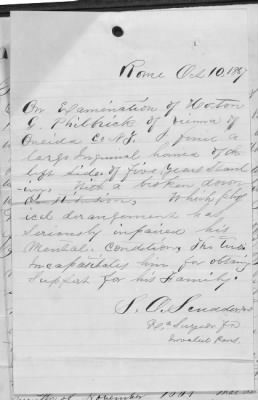 Rome Oct 10, 186
On Examination of Horton
G. Philbrick of Vienna of
Oneida Co N.Y. I find a
large Inguinal hernia of the
left side of five years stand
ing. With a broken down
Constitution, Which phys
ical derangement has
seriously impaired his
Mental Condition, The
Incapacitates him for obtaing
Support for his Family.
S. O. Scudder
Ex. Surgeon for
Invalid Pens.
November